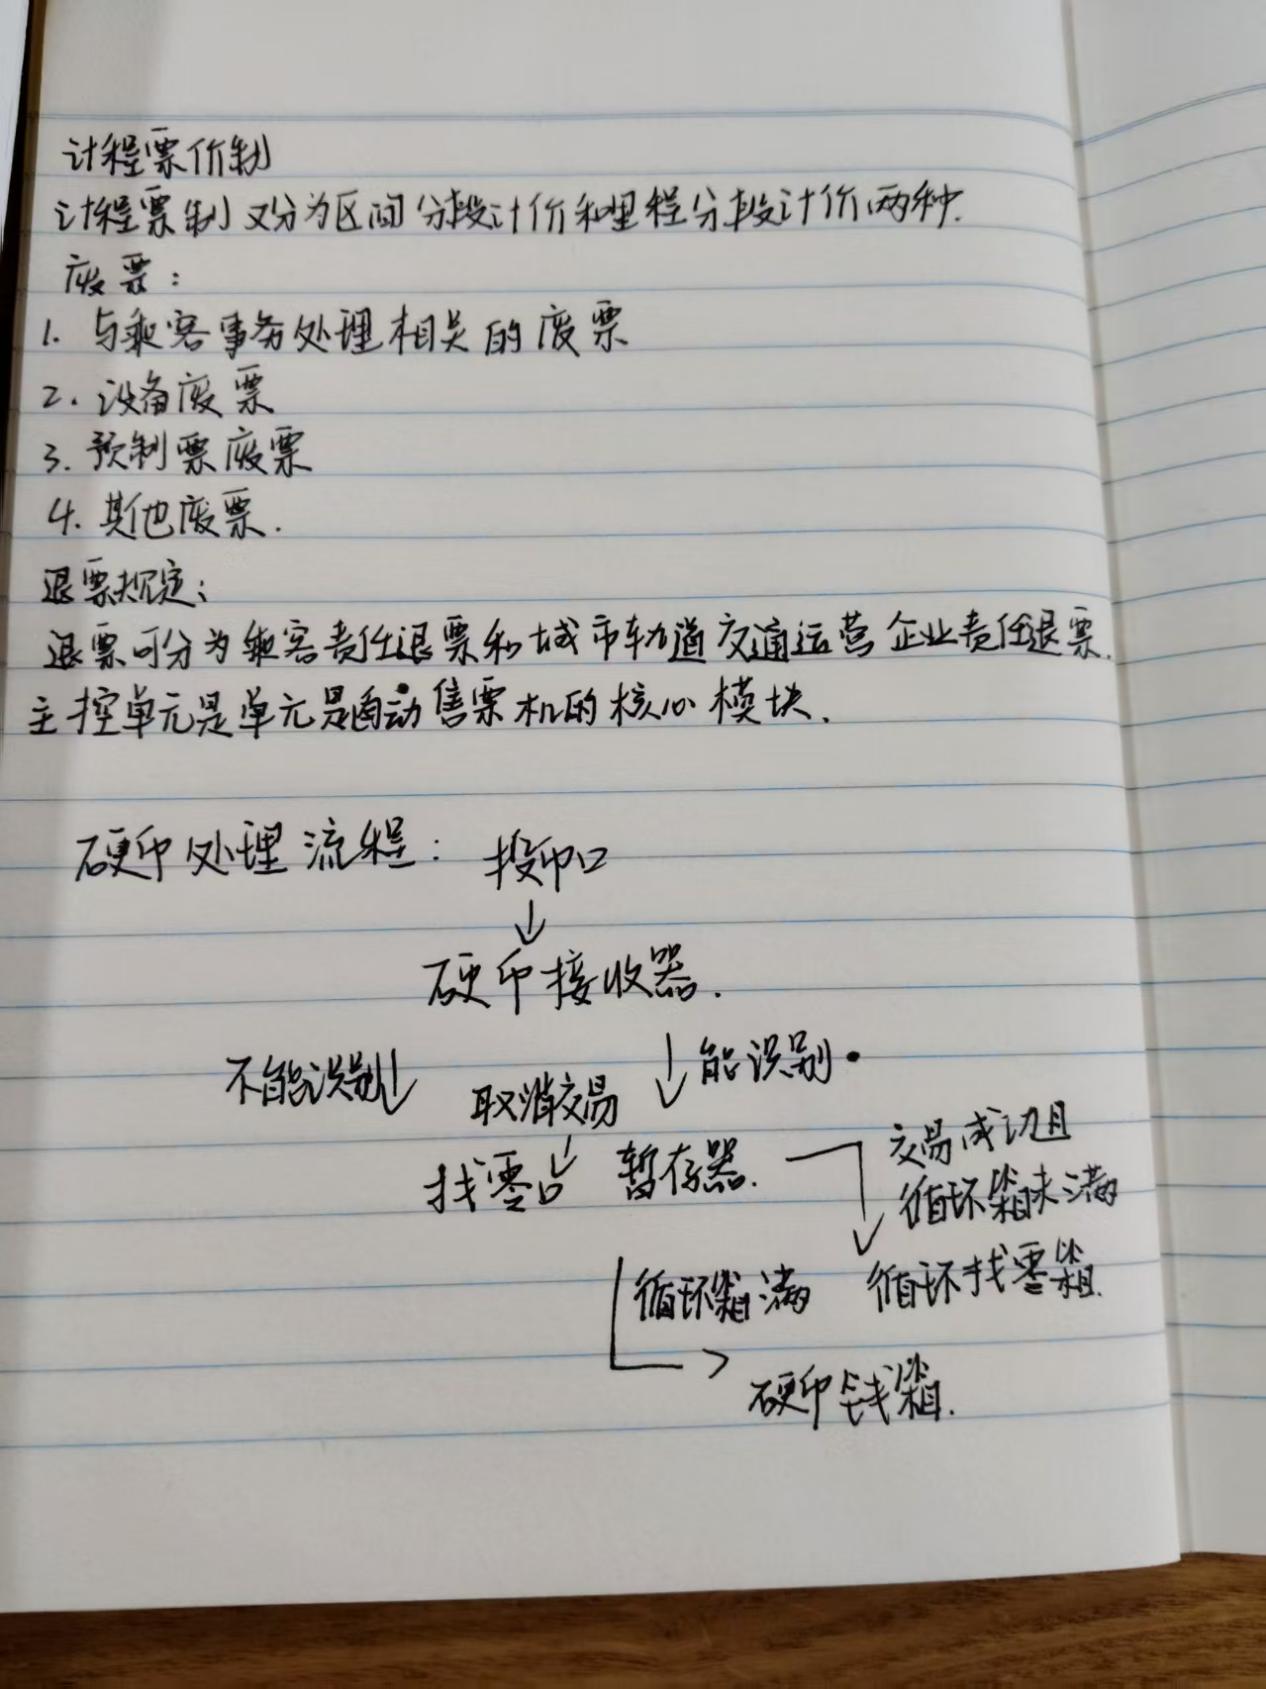 计程票价制
计程票制又分为区间分段计价和里程分段计价两种.
废票:
1. 与乘客事务处理相关的废票
2. 设备废票
3. 预制票废票
4. 其他废票.
退票规定:
退票可分为乘客责任退票和城市轨道交通运营企业责任退票.
主控单元是单元是自动售票机的核心模块.
硬币处理流程: 投币口
↓
硬币接收器.
不能识别↓ 取消交易 ↓能识别.
↓
找零口 暂存器. 交易成功且
循环箱未满
循环箱满 循环找零箱.
硬币钱箱.